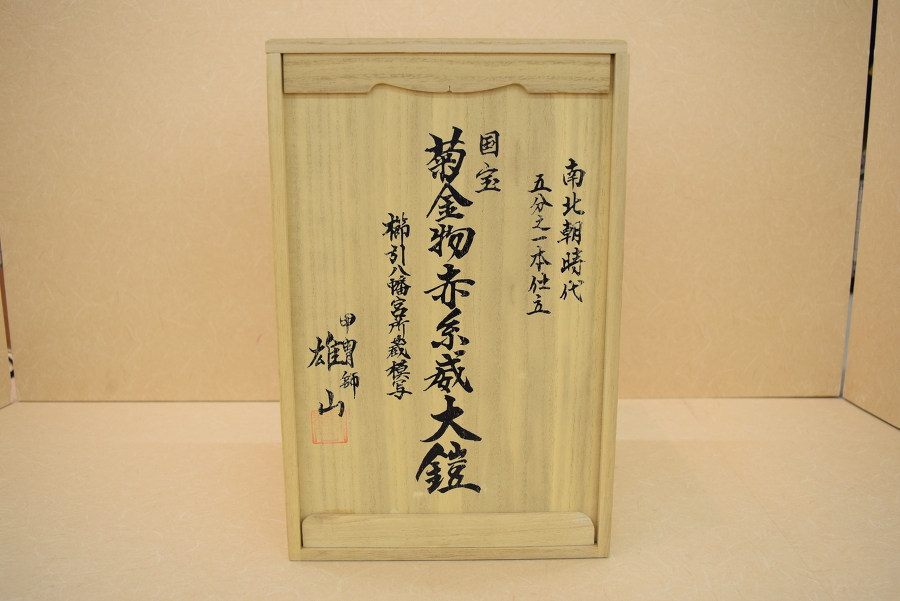 南北朝時代
五分之一本仕立
国宝
菊金物赤糸威大鎧
櫛引八幡宮所蔵模写
甲冑師
雄山